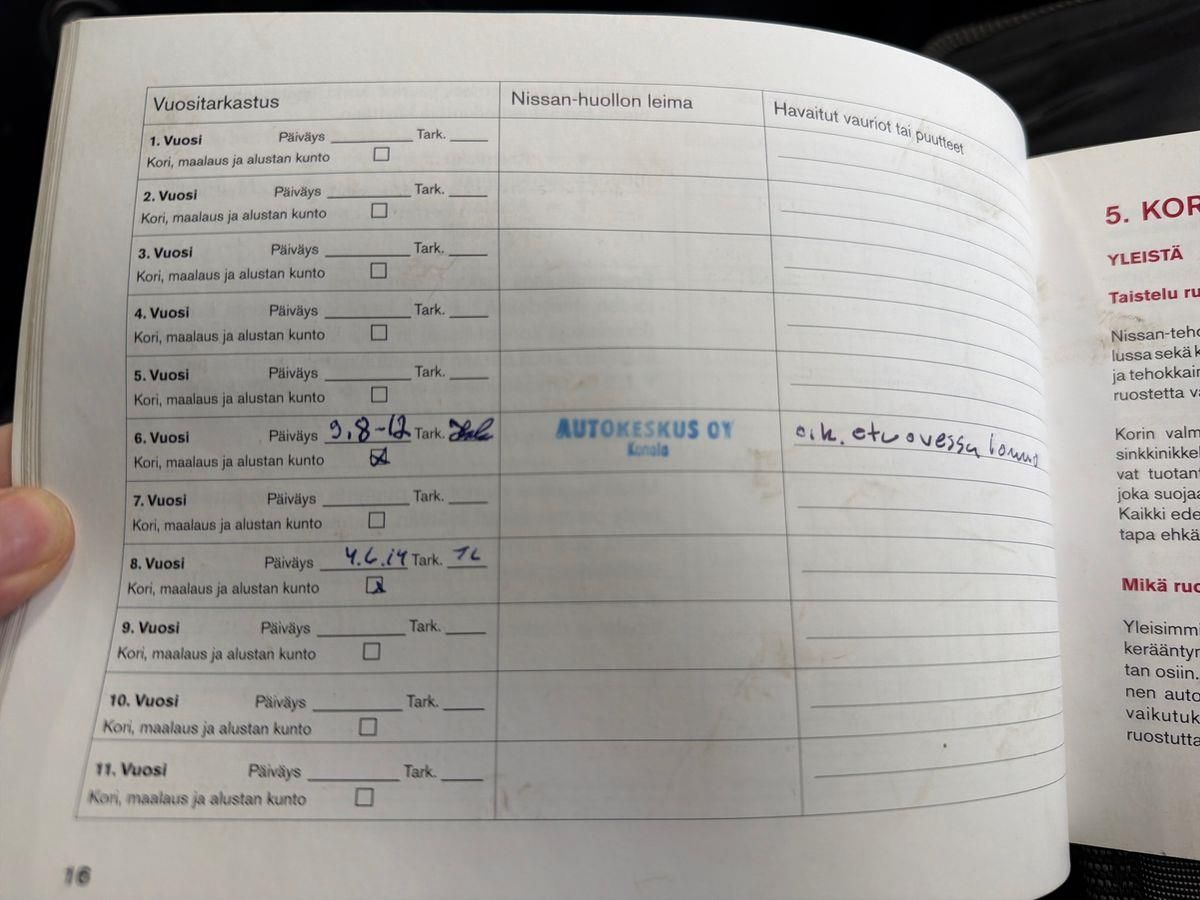 Vuositarkastus Nissan-huollon leima Havaitut vauriot tai puutteet
1. Vuosi Päiväys Tark.
Kori, maalaus ja alustan kunto
2. Vuosi Päiväys Tark.
Kori, maalaus ja alustan kunto
3. Vuosi Päiväys Tark.
Kori, maalaus ja alustan kunto
4. Vuosi Päiväys Tark.
Kori, maalaus ja alustan kunto
5. Vuosi Päiväys Tark.
Kori, maalaus ja alustan kunto
6. Vuosi Päiväys 9.8-12 Tark. AUTOKESKUS OY oik. etuovessa lommo
Kori, maalaus ja alustan kunto Konala
7. Vuosi Päiväys Tark.
Kori, maalaus ja alustan kunto
8. Vuosi Päiväys 4.6.14 Tark. TL
Kori, maalaus ja alustan kunto
9. Vuosi Päiväys Tark.
Kori, maalaus ja alustan kunto
10. Vuosi Päiväys Tark.
Kori, maalaus ja alustan kunto
11. Vuosi Päiväys Tark.
Kori, maalaus ja alustan kunto
16
5. KOR
YLEISTÄ
Taistelu ru
Nissan-teho
lussa sekä k
ja tehokkain
ruostetta va
Korin valm
sinkkinikkel
vat tuotant
joka suojaa
Kaikki ede
tapa ehkä
Mikä ruo
Yleisimmi
kerääntyn
tan osiin.
nen auto
vaikutuk
ruostutta